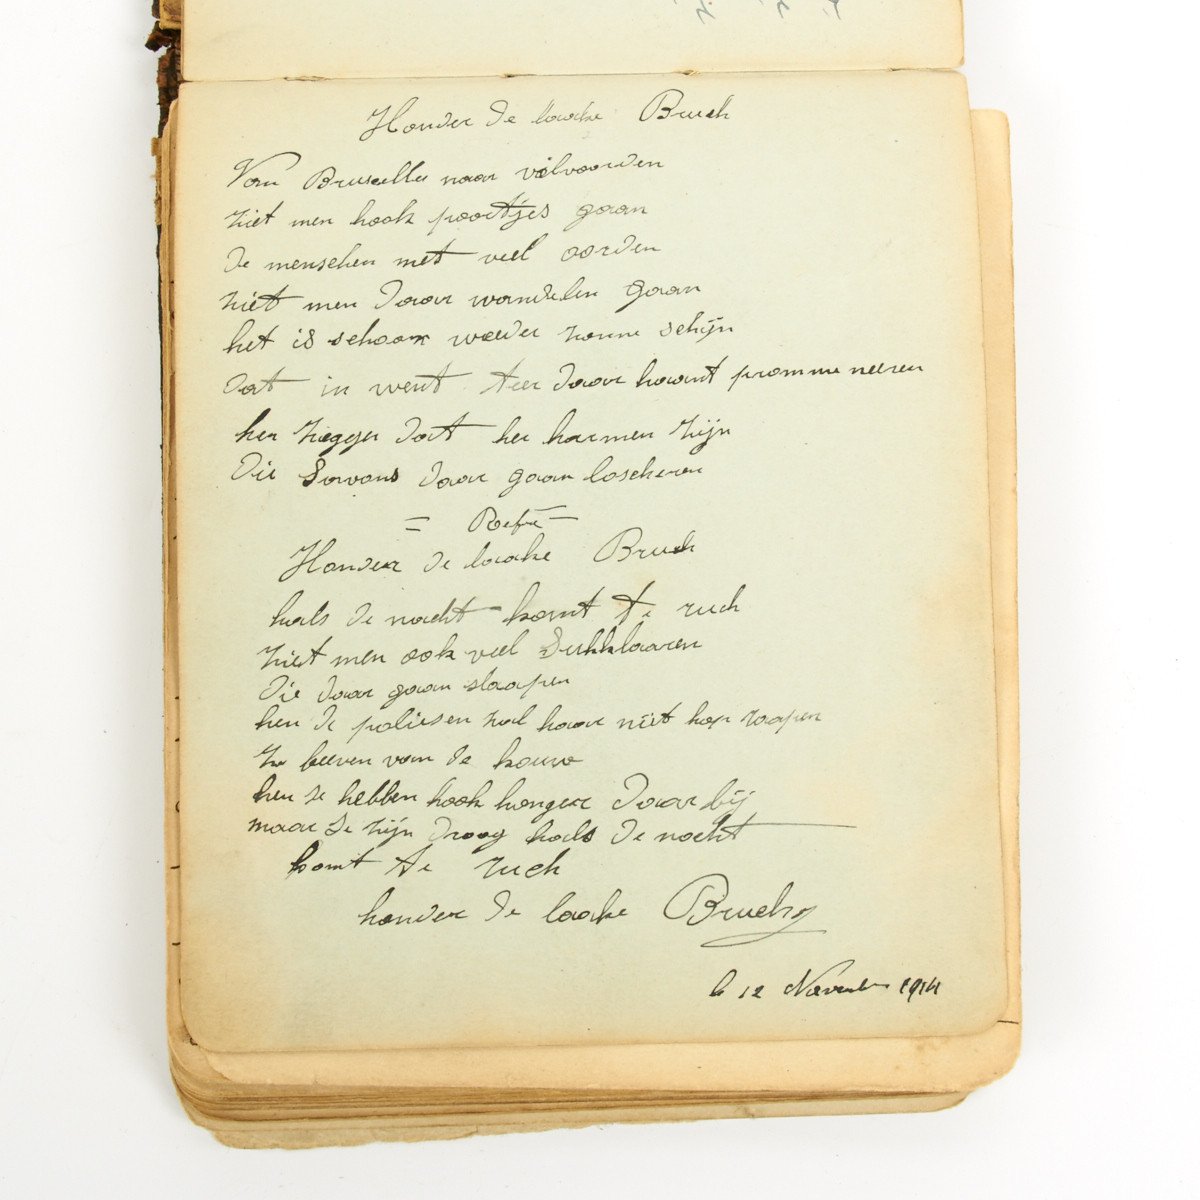 Honder de laake Bruch
Van Bruxelles naar vilvoorden
ziet men hook poortjes gaan
de menschen met veel oorden
ziet men daar wandelen gaan
het is schoon weeder zonne schijn
dat in went daar haant promme neeren
hen zegger dat her harmen zijn
die Savons daar gaan loscheren
= Refr =
Honder de laake Bruch
hals de nacht komt te ruch
ziet men ook veel Sukklaaren
die daar gaan slaapen
hen de poliesen zal haar niet hop raapen
ze beeven van de kouw
hen se hebben hook honger daar bij
maar se zijn droog hals de nacht
komt te ruch
honder de laake Bruch
le 12 Novembre 1914